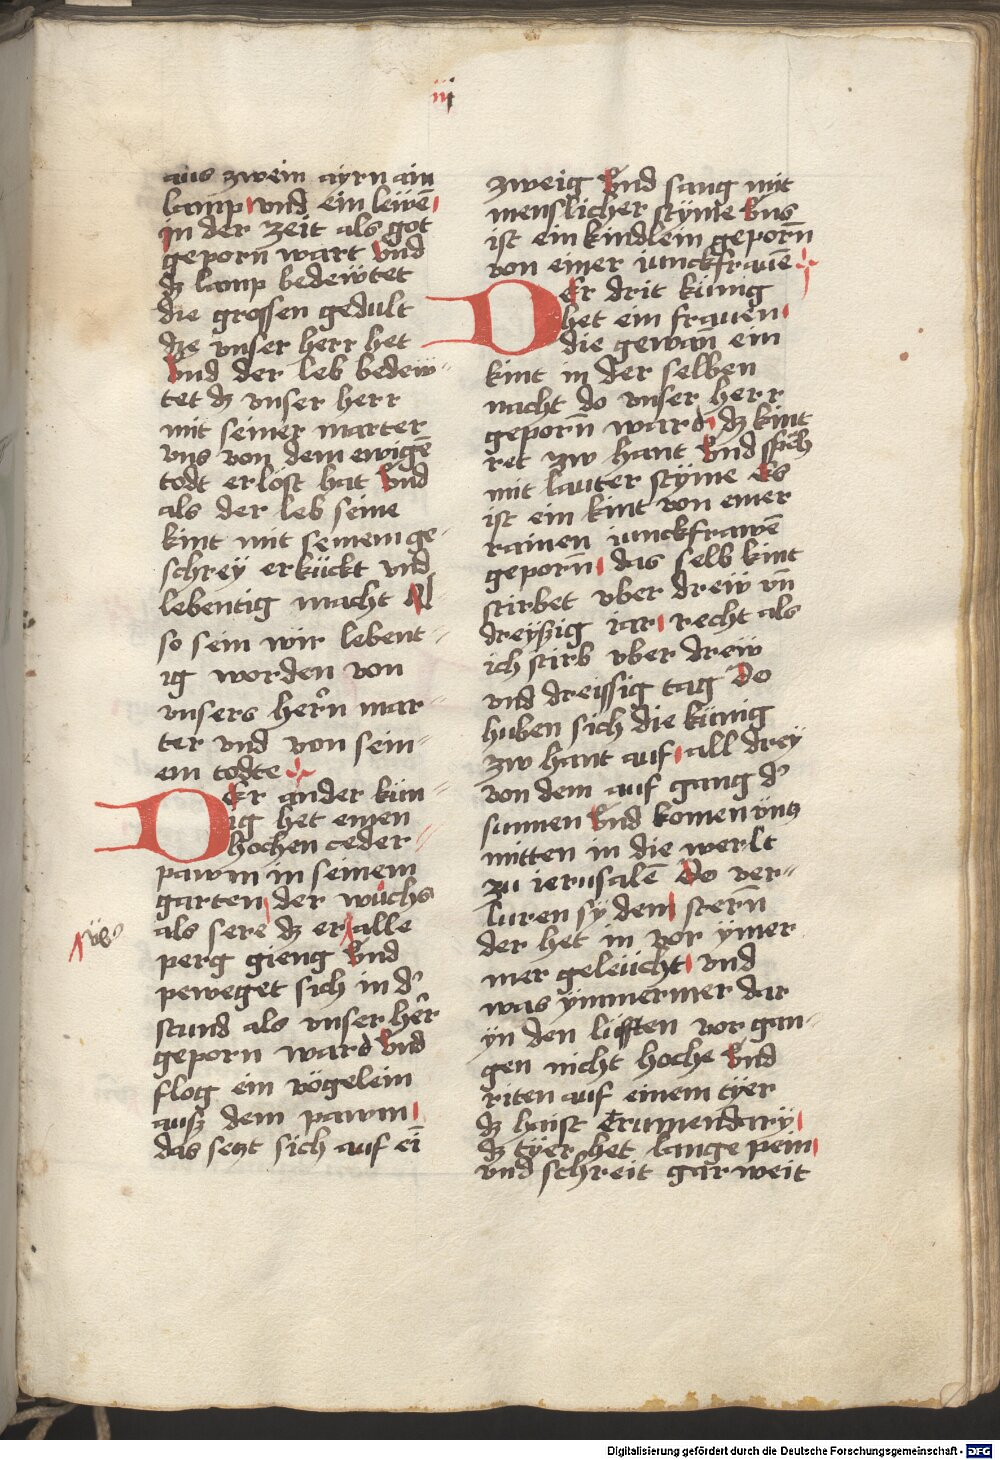 iij
aus zwein ayrn ain
lamp vnd ein leẅẽ
in der zeit als got
geporn wart Vnd
dz lamp bedeẅtet
die grossen gedult
dze vnser herr het
Vnd der leb bedeẅ-
tet dz vnser herr
mit seiner marter
vns von dem ewigẽ
todt erlöst hat Vnd
als der leb seine
kint mit seinem ge-
schrey erkückt vnd
lebentig macht Al
so sein wir lebent-
ig worden von
vnsers herñ mar-
ter vnd von sein-
em todte
DEr ander kün-
ig het einen
hochen ceder-
pawm in seinem
garten der wuͦchs
als sere dz er alle
vber
perg gieng Vnd
peweget sich in d'
stund als vnser her̃
geporn ward Vnd
flog ein vögelein
ausz dem pawm
das setzt sich auf eĩ
zweig Vnd sang mit
menslicher styme Vns
ist ein kindlein geporñ
von einer iunckfrauẽ
DEr drit künig
het ein frauen
die gewañ ein
kint in der selben
nacht do vnser herr
geporñ ward dz kint
ret zw hant Vnd sp̃ch
mit lauter styme Es
ist ein kint von einer
rainen iunckfrawẽ
geporñ das selb kint
stirbet vber dreẅ vñ
dreyßig iar recht als
ich stirb vber dreẅ
vnd dreissig tag Do
huben sich die künig
zw hant auf all dreÿ
von dem auf gang d'
sunnen Vnd komen vntz
mitten in die werlt
zu ierusalẽ Do ver-
luren sy den sterñ
der het in vor ymer
mer geleücht vnd
was ymmermer dar
yn den lüfften vor gan-
gen nicht hoche Vnd
riten auf einem tyer
dz haist Trumendarÿ
dz tÿer het lange pein
vnd schreit gar weit
Digitalisierung gefördert durch die Deutsche Forschungsgemeinschaft - DFG